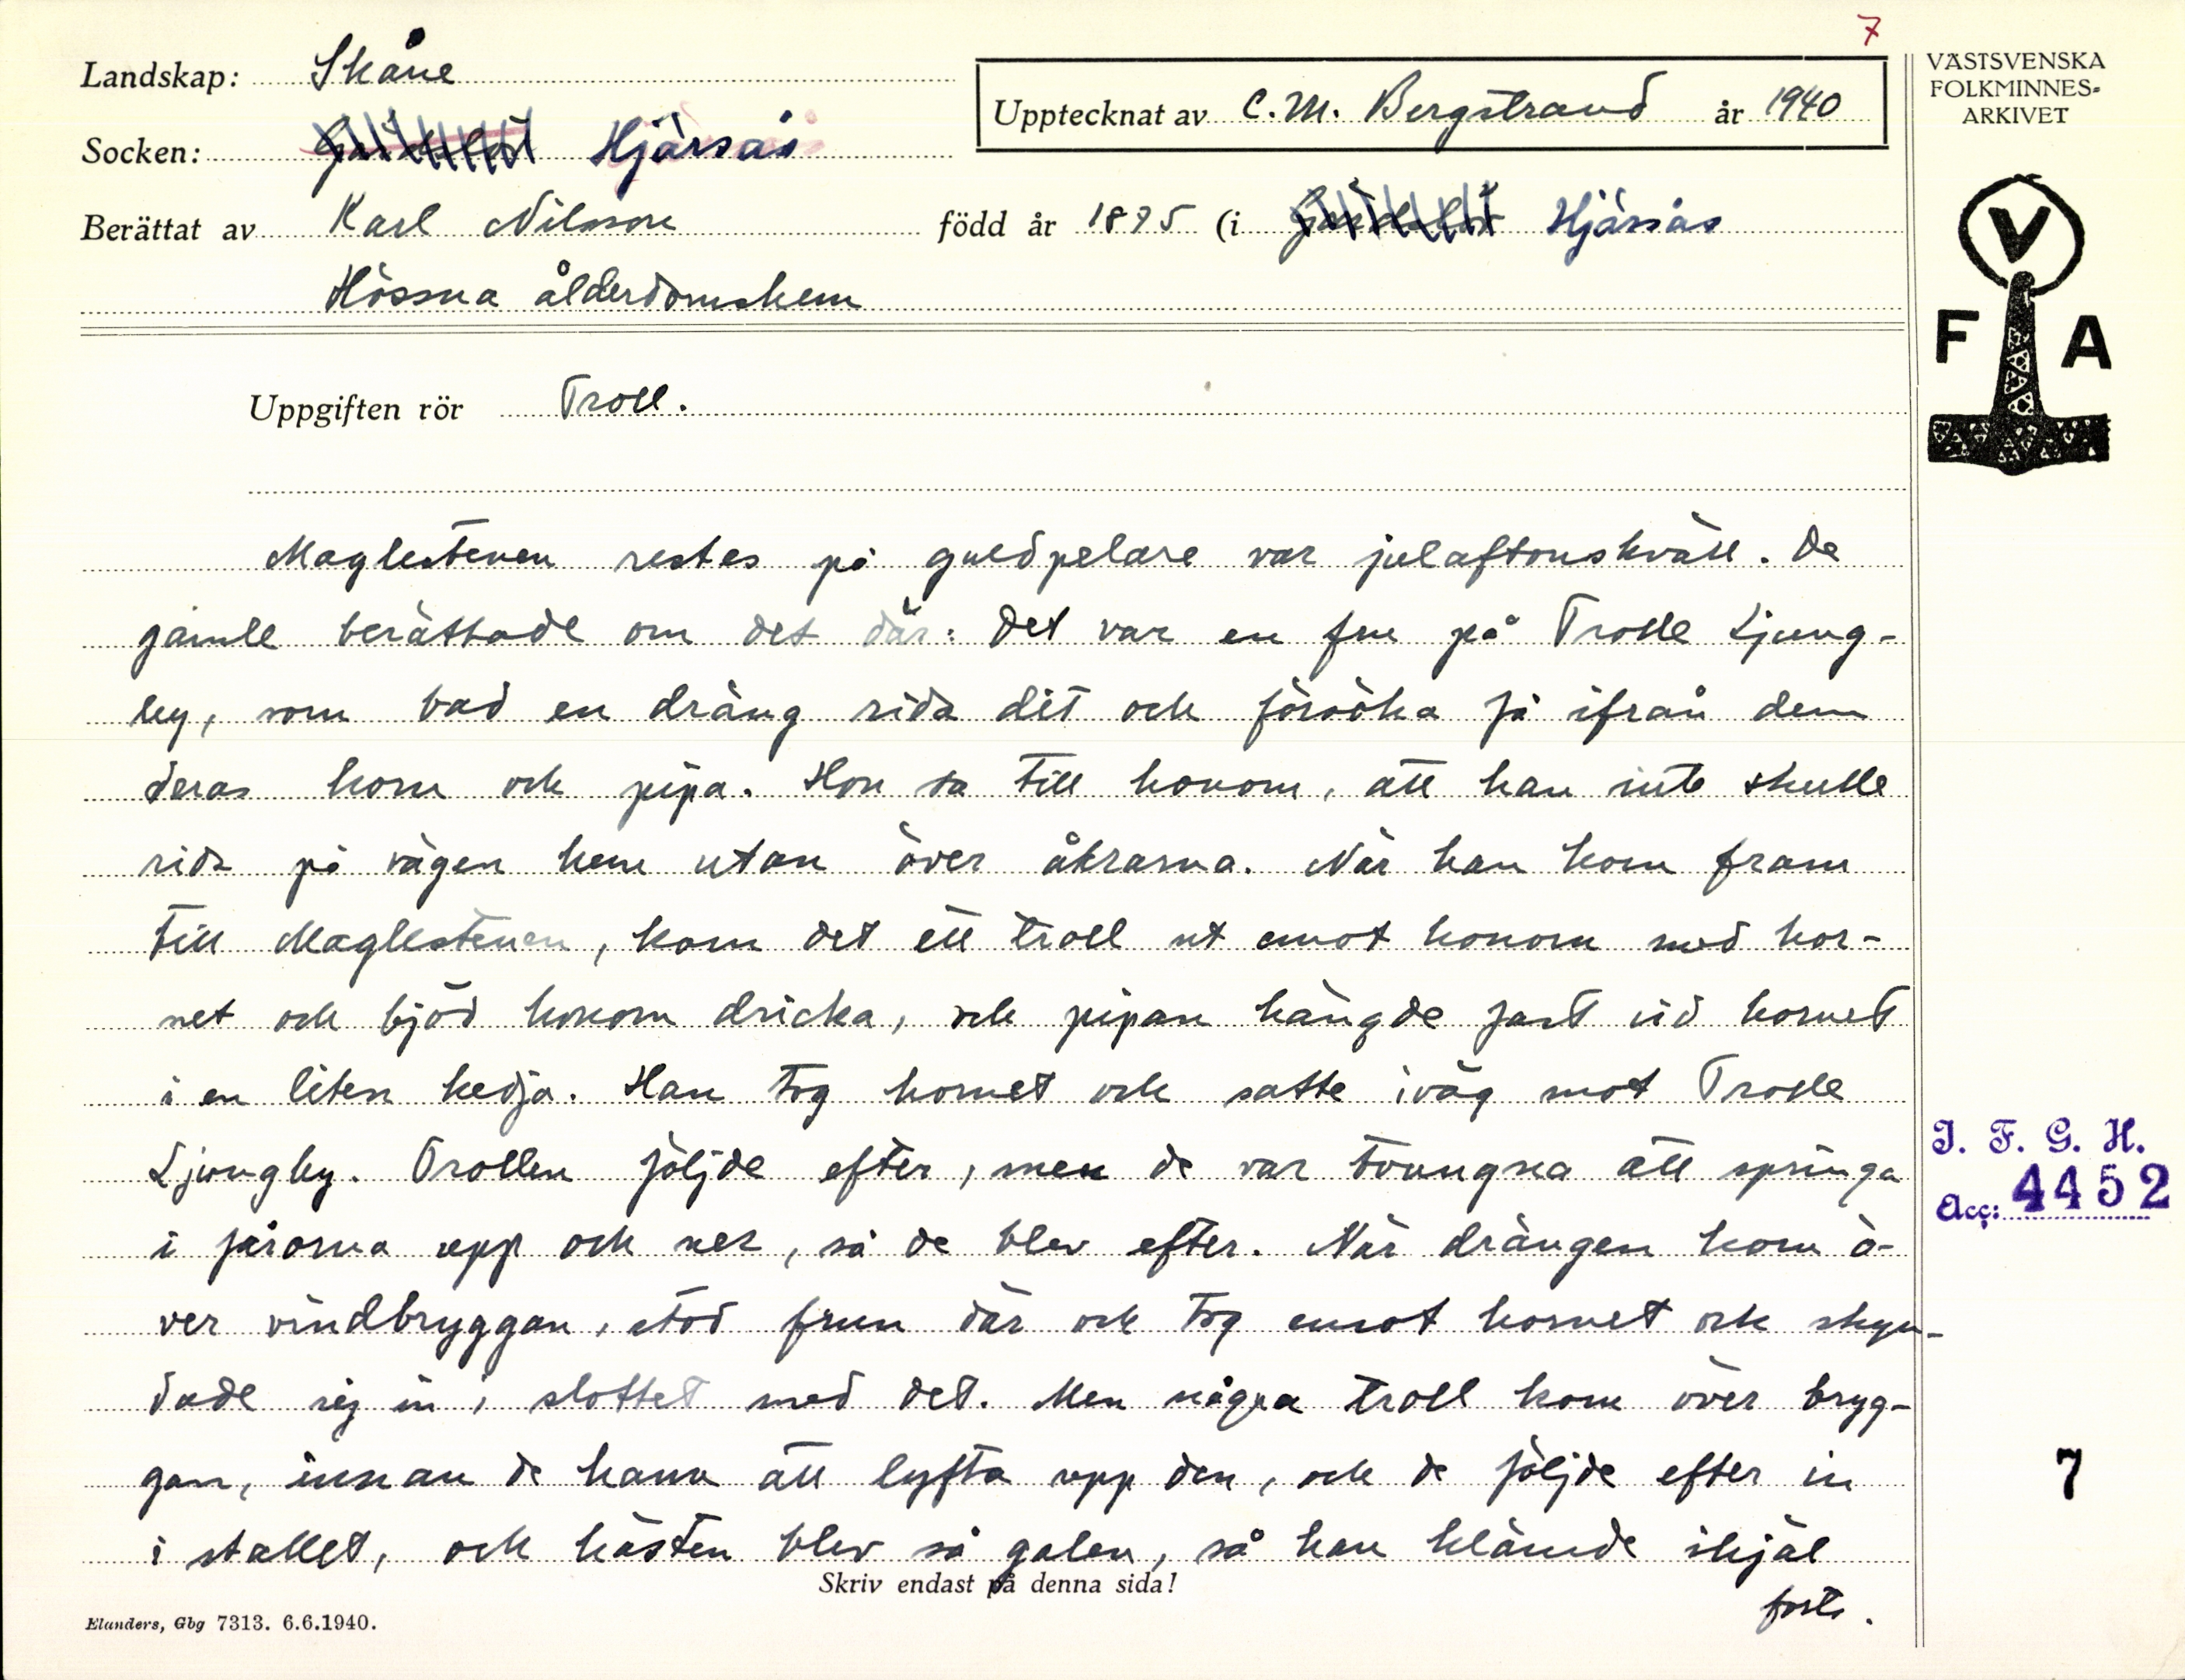 7
Landskap: Skåne
Upptecknat av C. M. Bergstrand år 1940
VÄSTSVENSKA
FOLKMINNES-
ARKIVET
Socken: Hjärsås
Berättat av Karl Nilsson född år 1875 (i Hjärsås
Hössna ålderdomshem
V
F A
Uppgiften rör Troll.
Maglestenen restes på guldpelare var julaftonskväll. De
gamle berättade om det där: Det var en fru på Trolle Ljung-
by, som bad en dräng rida dit och försöka få ifrån dem
deras horn och pipa. Hon sa till honom, att han inte skulle
rida på vägen hem utan över åkrarna. När han kom fram
till Maglestenen, kom det ett troll ut emot honom med hor-
net och bjöd honom dricka, och pipan hängde fast vid hornet
i en liten kedja. Han tog hornet och satte iväg mot Trolle
Ljungby. Trollen följde efter, men de var tvungna att springa
i fårorna upp och ner, så de blev efter. När drängen kom ö-
ver vindbryggan, stod frun där och tog emot hornet och skyn-
dade sig in i slottet med det. Men några troll kom över bryg-
gan, innan de hann att lyfta upp den, och de följde efter in
i stallet, och hästen blev så galen, så han klämde ihjäl
forts.
I. F. G. H.
Acc: 4452
7
Skriv endast på denna sida!
Elanders, Gbg 7313. 6.6.1940.